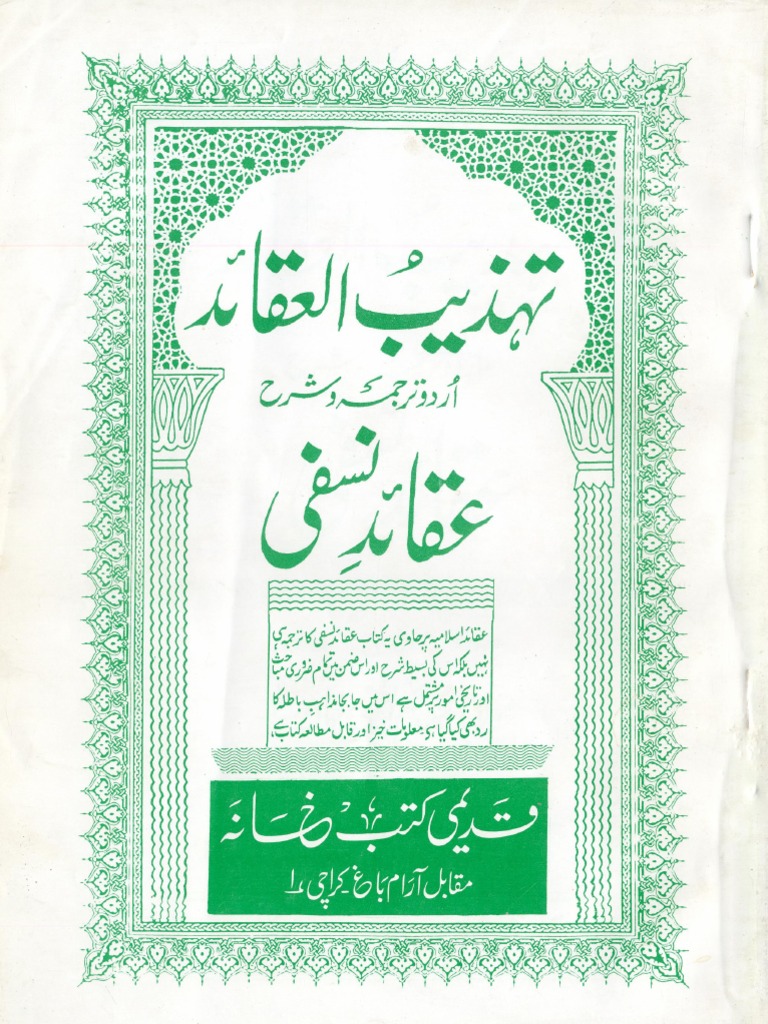 تہذیبُ العقائد
اُردو ترجمہ و شرح
عقائدِ نسفی
عقائد اسلامیہ پر حاوی یہ کتاب عقائد نسفی کا ترجمہ ہی
نہیں بلکہ اس کی بسیط شرح اور اس ضمن میں تمام ضروری مباحث
اور تاریخی امور پر مشتمل ہے اس میں جا بجا مذاہب باطلہ کا
رد بھی کیا گیا ہے معلومات خیز اور قابل مطالعہ کتاب ہے،
قدیمی کتب خانہ
مقابل آرام باغ کراچی ۱